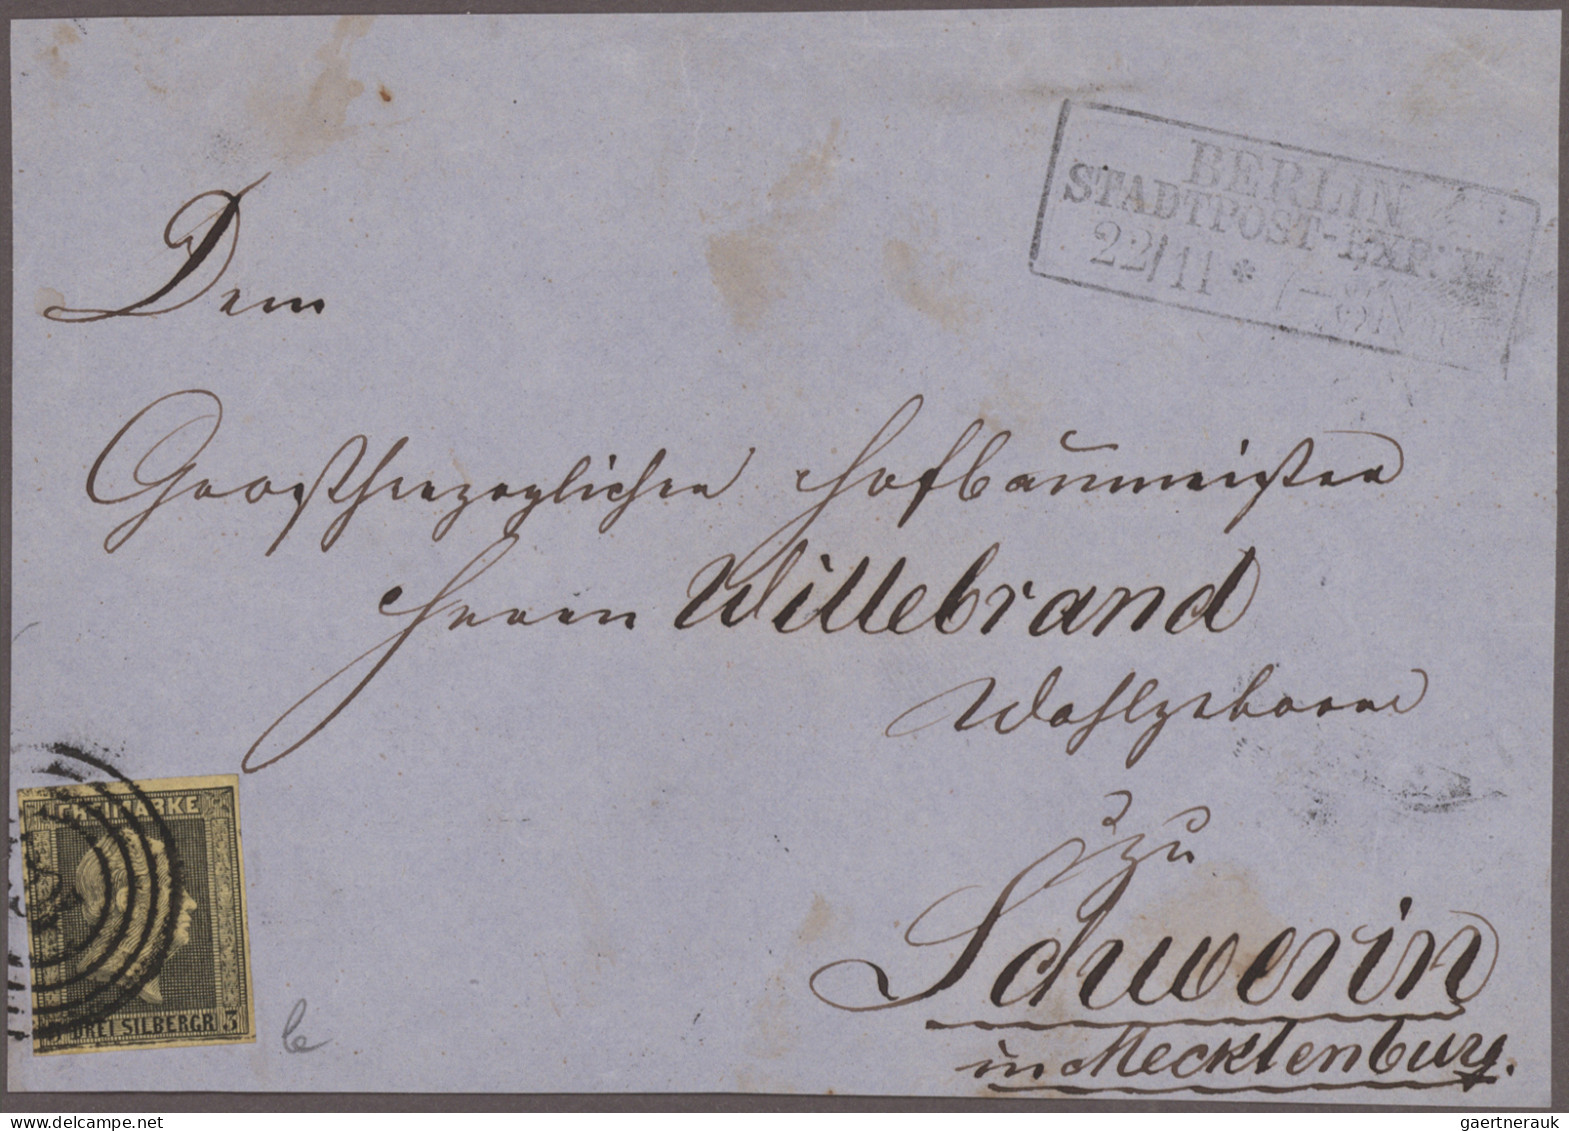 BERLIN
STADTPOST-EXP. XI
22/11 *
Dem
Grossherzoglichen Hofbaumeister
Herrn Willebrand
Wohlgeboren
zu
Schwerin
in Mecklenburg.
DREI SILBERGR 3
gaertnerauk